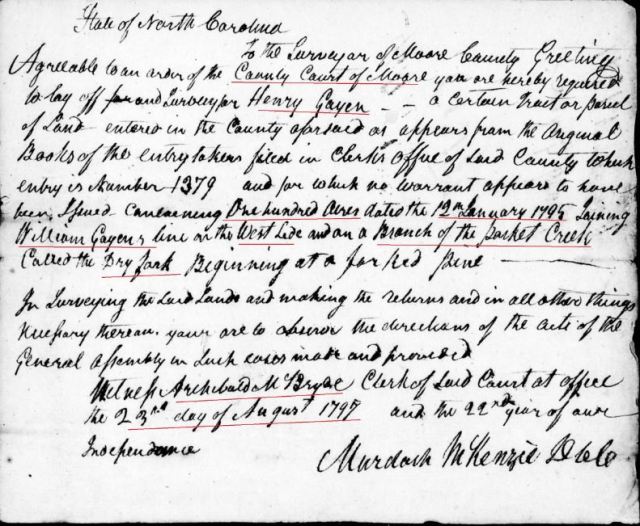 State of North Carolina
To the Surveyor of Moore County Greeting
Agreeable to an order of the County Court of Moore you are hereby required
to lay off and Survey for Henry Gayen - - a Certain Tract or parcel
of Land entered in the County aforsaid as appears from the Original
Books of the entry takers filed in Clerks office of said County which
entry is Number 1379 and for which no Warrant appears to have
been Issued Containing One hundred Acres dated the 12th January 1795 Joining
William Gayens line on the West Side and on a Branch of the Creek
Called the Dry fork Beginning at a forked Pine
In Surveying the said Lands and making the returns and in all other things
thereon your are to observe the directions of the acts of the
General Assembly in Such cases made and provided
Witness Archibald McBryde Clerk of said Court at office
the 23rd day of August 1797 and the 22nd year of our
Independance
Murdoch McKenzie